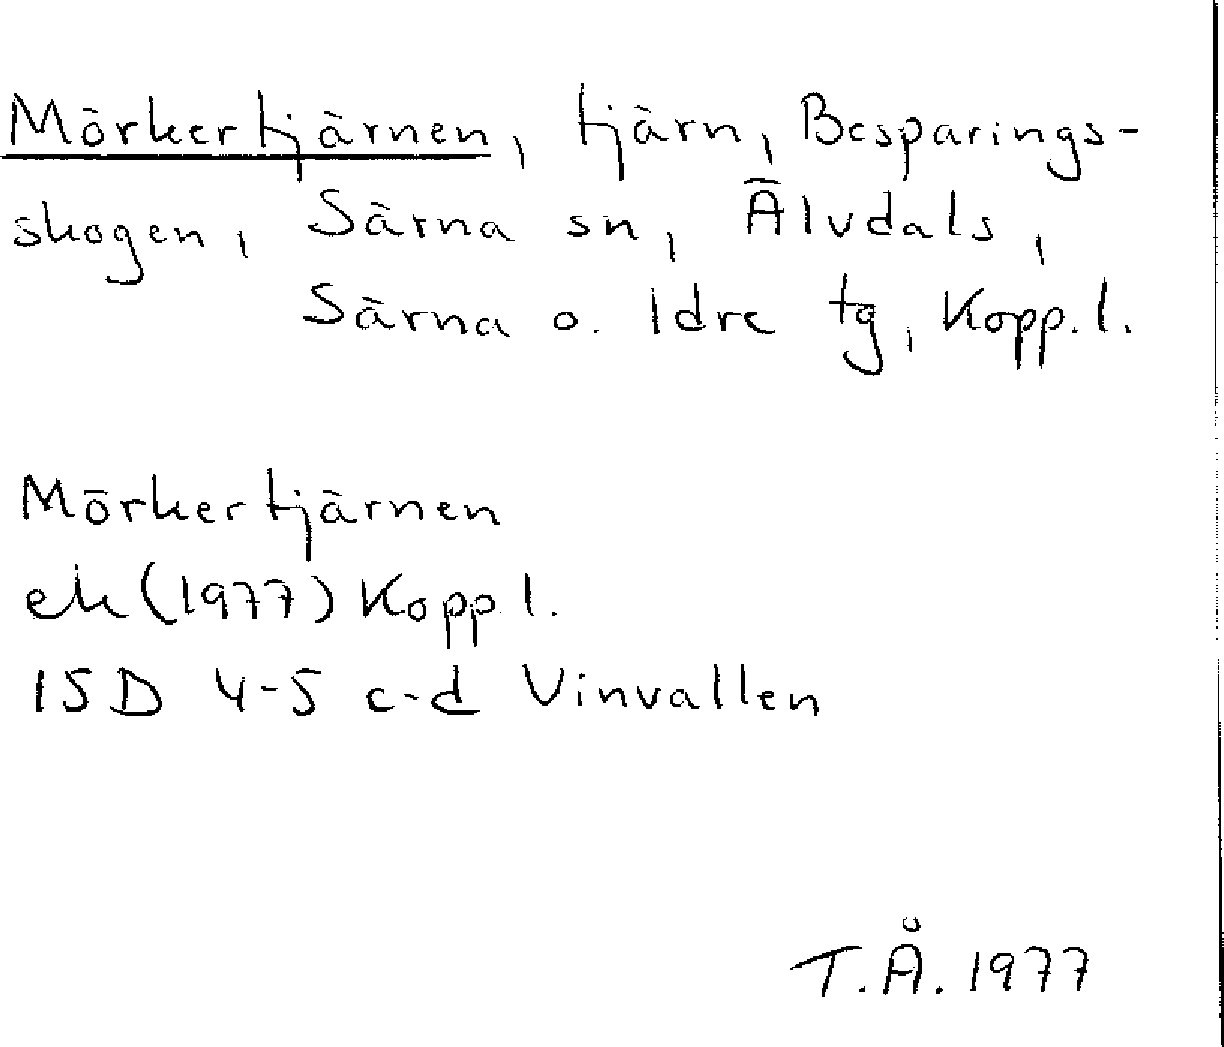 Mörkertjärnen, tjärn, Besparings-
skogen, Särna sn, Älvdals,
Särna o. Idre tg, Kopp. l.
Mörkertjärnen
ek (1977) Kopp l.
15D 4-5 c-d Vinvallen
T.Å. 1977